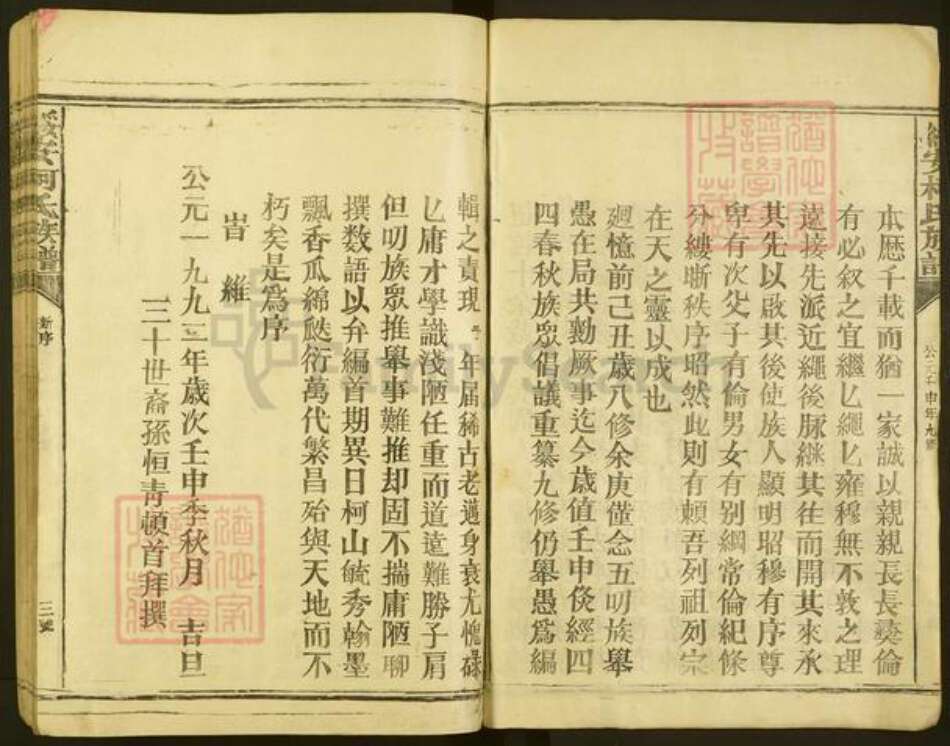 本厯千載而猶一家誠以親親長長彝倫
有必叙之宜繼乚繩乚雍穆無不敦之理
遠接先派近繩後脉継其往而開其來承
其先以啟其後使族人顯明昭穆有序尊
卑有次父子有倫男女有别綱常倫紀條
分縷晰秩序昭然此則有賴吾列祖列宗
在天之靈以成也
廻憶前己丑歲八修余庚僅念五叨族舉
愚在局共勷厥事迄今歲值壬申倐經四
四春秋族眾倡議重纂九修仍舉愚爲編
輯之責現年届稀古老邁身衰尤愧碌
乚庸才學識淺陋任重而道遠難勝子肩
但叨族眾推舉事難推却固不揣庸陋聊
撰数語以弁編首期異日柯山毓秀翰墨
飄香瓜綿瓞衍萬代繁昌殆與天地而不
朽矣是爲序
旹維
公元一九九二年歲次壬申季秋月 吉旦
三十世裔孫恒青頓首拜撰
柯氏族譜
新序
三號
FamilySearch